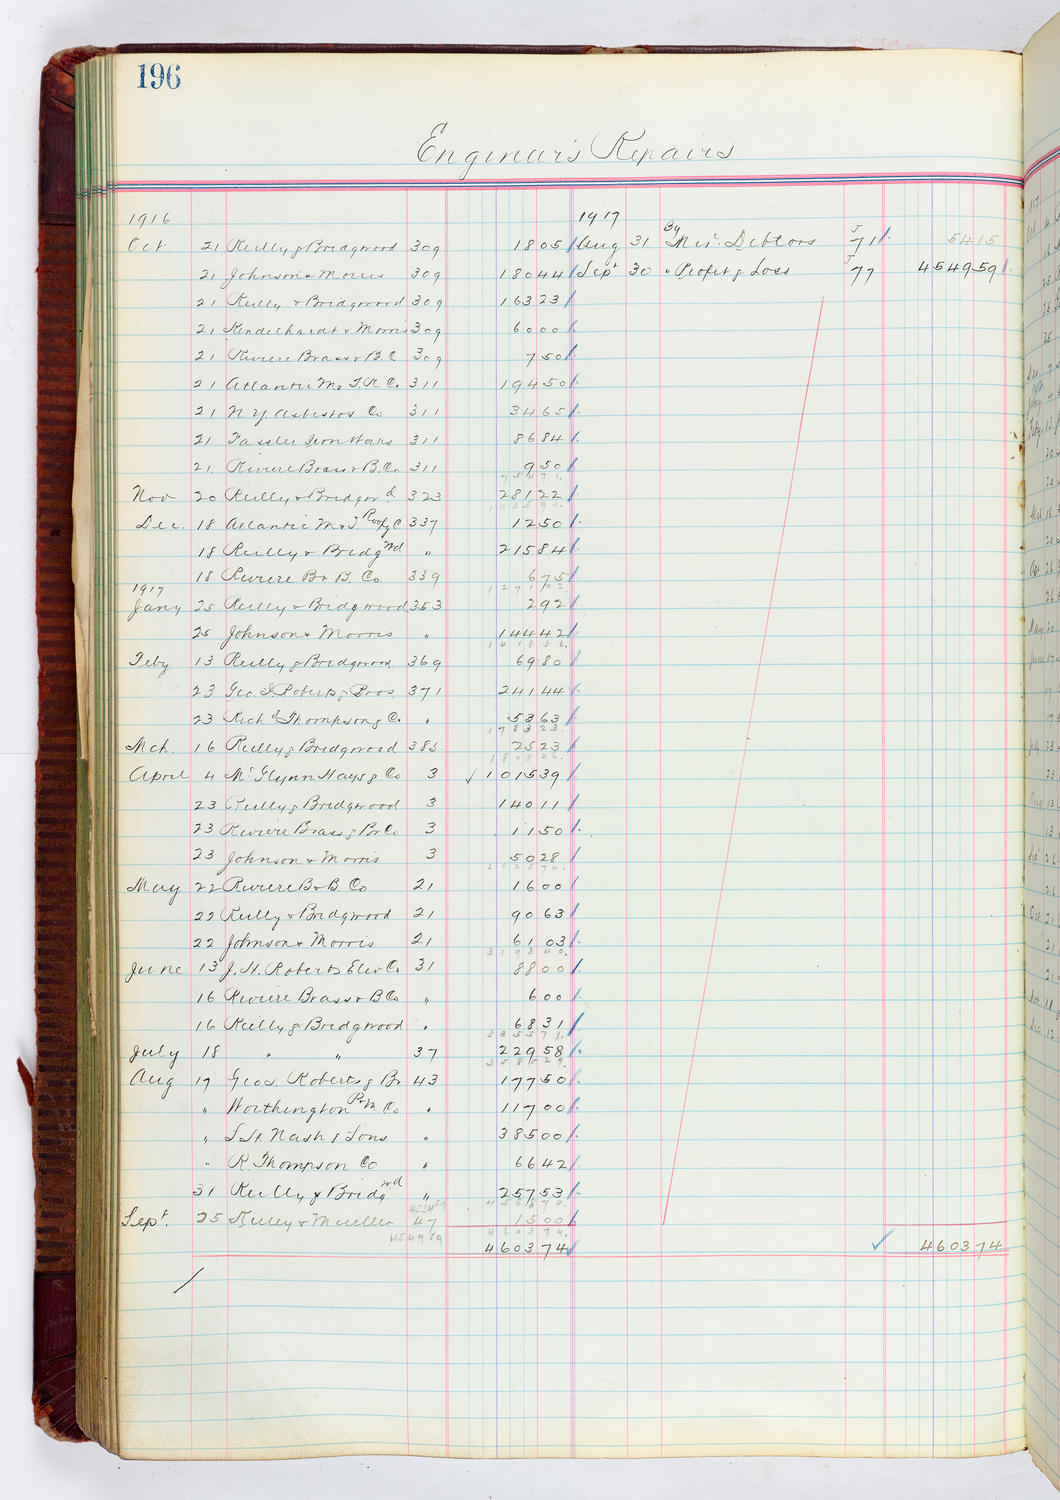 196
Enginear's Repairs
1916 1917
Oct. 21 Reilly & Bridgwood 309 1805 Aug 31 By Mis. Debtors J 71 5415
21 Johnson & Morris 309 18044 Sept 30 " Profit & Loss J 77 454959
21 Reilly & Bridgwood 309 16323
21 Kenderhardt & Morris 309 6000
21 Riviere Brass & B. C 309 750
21 Atlantic M & T. R C. 311 19450
21 N Y Asbestos Co 311 3465
21 Fassler Iron Works 311 8684
21. Riviere Brass & B. Co. 311 950
75471.
Nov 20 Reilly & Bridgwd 323 28122
103593.
Dec. 18 Atlantic M & T Roofg C 337 1250
18 Reilly & Bridgwd " 21584
18 Riviere B & B. Co. 339 675
127102.
1917
Jany 25 Reilly & Bridgwood 353 292
25 Johnson & Morris " 14442
141836.
Feby 13 Reilly & Bridgwood 369 6980
23 Geo. S. Roberts & Bros. 371 24144
23 Richd Thompson & C. " 5363
178323.
Mch. 16 Reilly & Bridgwood 383. 2523
180846.
April 4 McGlynn Hays & Co 3 101539
23 Reilly & Bridgwood 3 14011
23 Riviere Brass & Br Co 3 1150
23 Johnson & Morris 3 5028
302574.
May 22 Riviere B & B. Co 21 1600
22 Reilly & Bridgwood 21 9063
22 Johnson & Morris 21 6103
319340.
June 13 J. H. Roberts Elev Co 31 8800
16 Riviere Brass & B Co " 600
16 Reilly & Bridgwood " 6831
335571.
July 18 " " 37 22958
358529.
Aug 17 Geo S. Roberts & Br 43 17750
" Worthington P & M Co " 11700
" S. H. Nash & Sons " 38500
" R. Thompson Co " 6642
31 Reilly & Bridgwd " 25753
458874.
Sept. 25 Kelley & Mueller 47 1500
460374.
454959
460374 460374